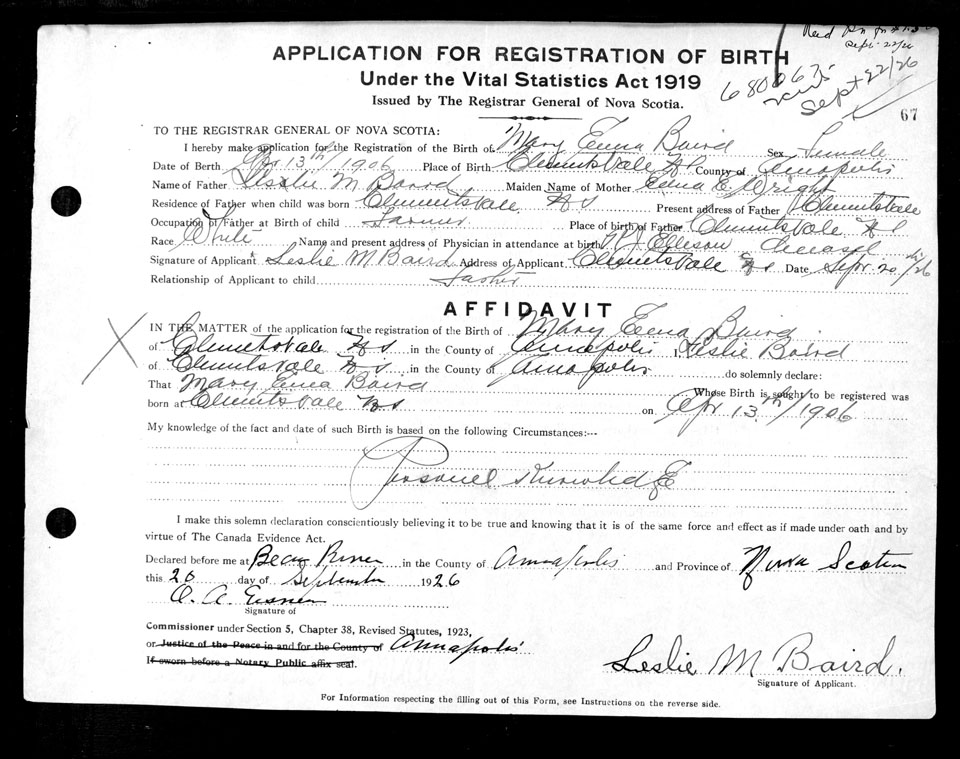 Sept 22/26
APPLICATION FOR REGISTRATION OF BIRTH
Under the Vital Statistics Act 1919
680067
Sept 22/26
Issued by The Registrar General of Nova Scotia.
67
TO THE REGISTRAR GENERAL OF NOVA SCOTIA:
I hereby make application for the Registration of the Birth of Mary Baird Sex Female
Date of Birth Apr 13th/1906 Place of Birth Clementsvale N S County of Annapolis
Name of Father Leslie M Baird Maiden Name of Mother Edna E Wright
Residence of Father when child was born Clementsvale N S Present address of Father Clementsvale
Occupation of Father at Birth of child Farmer Place of birth of Father Clementsvale N S
Race White Name and present address of Physician in attendance at birth Ellison
Signature of Applicant Leslie M Baird Address of Applicant Clementsvale N S Date Sept. 20th/26
Relationship of Applicant to child Father
AFFIDAVIT
IN THE MATTER of the application for the registration of the Birth of Mary Baird
of Clementsvale N S in the County of Annapolis I, Leslie Baird
of Clementsvale N S in the County of Annapolis do solemnly declare:
That Mary Baird Whose Birth is sought to be registered was
born at Clementsvale N S on Apr 13th/1906
My knowledge of the fact and date of such Birth is based on the following Circumstances:---
Personel Knowledge
I make this solemn declaration conscientiously believing it to be true and knowing that it is of the same force and effect as if made under oath and by
virtue of The Canada Evidence Act.
Declared before me at Bear River in the County of Annapolis and Province of Nova Scotia
this 20 day of September 1926
O. A.
Signature of
Commissioner under Section 5, Chapter 38, Revised Statutes, 1923,
or Justice of the Peace in and for the County of Annapolis
If sworn before a Notary Public affix seal.
Leslie M Baird.
Signature of Applicant.
For Information respecting the filling out of this Form, see Instructions on the reverse side.